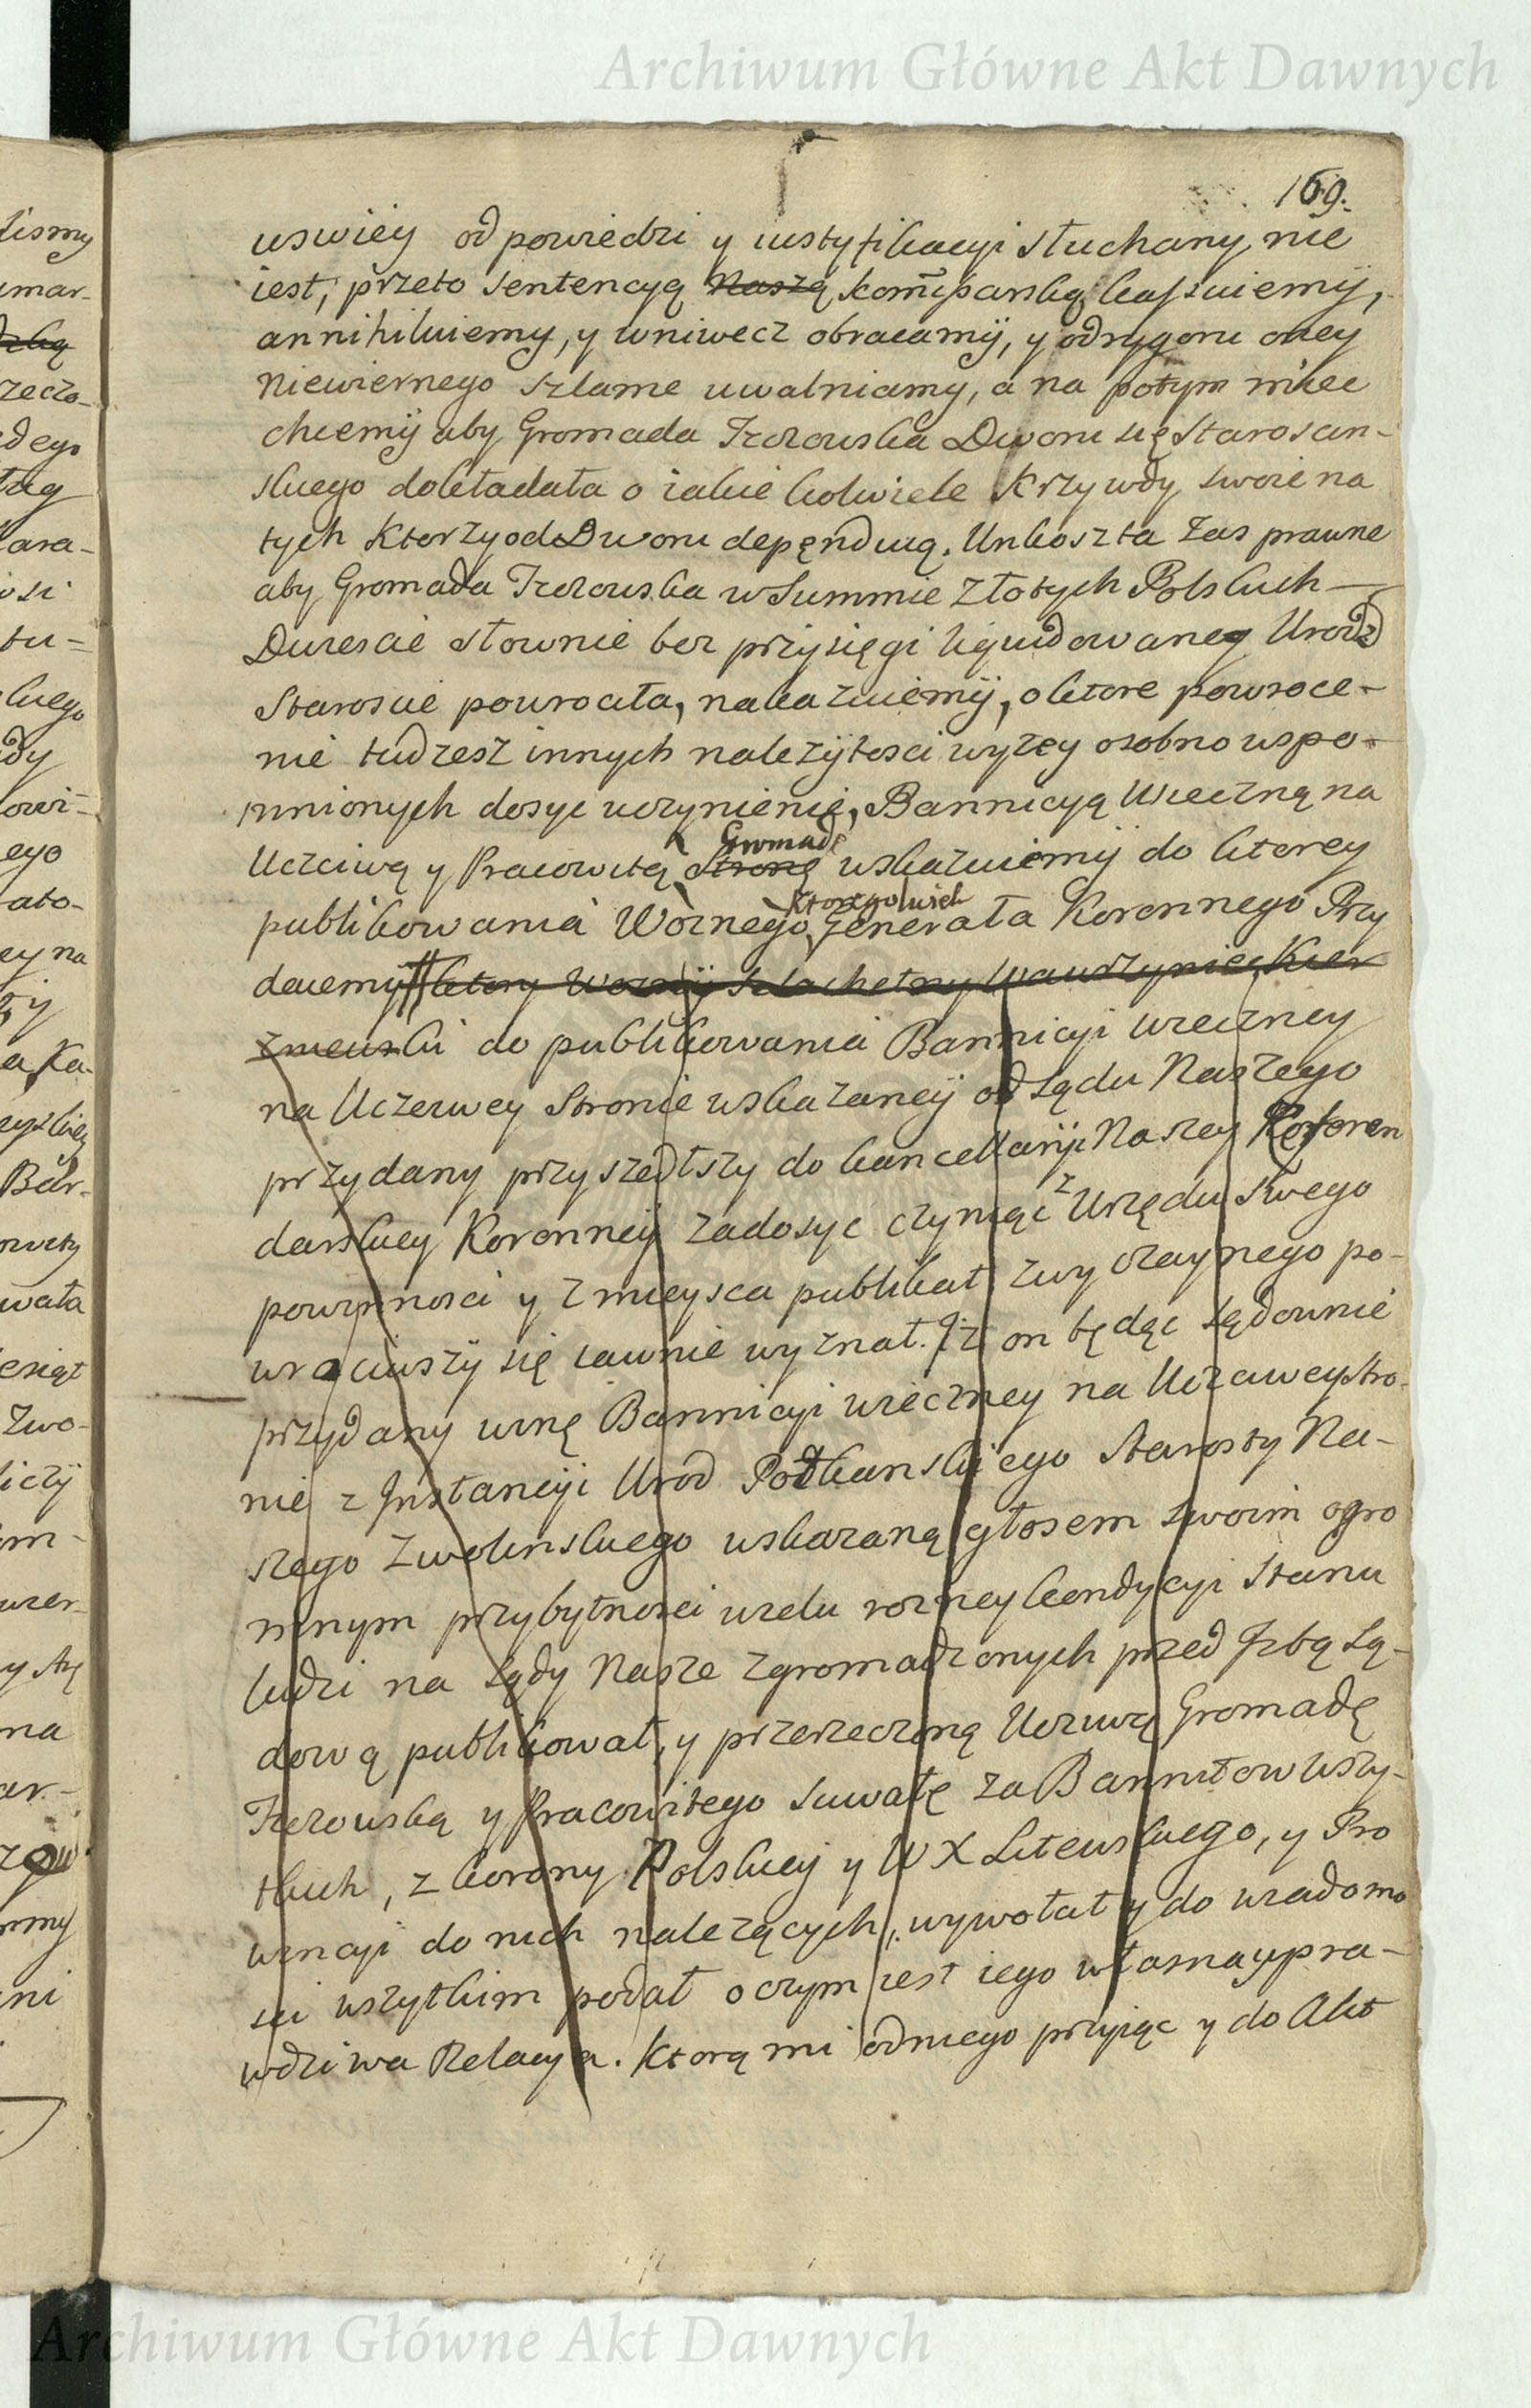 Archiwum Główne Akt Dawnych
169.
uswiey odpowiedzi y iustyfikacyi słuchany nie
iest, przeto sentencyą Naszą kommisarską kassuiemy,
annihiluiemy, y wniwecz obracamy, y od rygoru oney
niewiernego Szlamę uwalniamy, a na potym miec
chcemy aby Gromada Dworu się Starosan-
skiego dokładała o iakie kolwiek Krzywdy swoie na
tych Ktorzy od Dworu depęnduią. Unkoszta zas prawne
aby Gromada w Summie Złotych Polskich
Dwiescie słownie bez przysięgi liquidowaney Urodz
Staroscie powrociła, nakazuiemy, o ktore powroce-
nie tudzesz innych nalezytosci wyzey osobno wspo-
mnionych dosyc uczynienie, Bannicyą wieczną na
Gromadę
Uczciwą y Pracowitą Stronę wskazuiemy do ktorey
Ktoregokolwiek
publikowania Woznego Generała Koronnego Przy
daiemy ktory Wozny Szlachetny Wawrzyniec
do publikowania Bannicyi wieczney
na Uczciwey Stronie wskazaney od Sądu Naszego
przydany przyszedłszy do kancellaryi Naszey Referen
z
darskiey Koronney zadosyc czyniąc Urzędu swego
powinnosci y z mieysca publikat zwyczaynego po-
wrociwszy się iawnie wyznał. Iz on będąc sądownie
przydany winę Bannicyi wieczney na Uczciwey stro-
nie z Instancyi Urod Podkanskiego Starosty Na-
szego Zwolinskiego wskazaną głosem swoim ogro
mnym przybytnosci wielu rozney kondycyi Stanu
ludzi na Sądy Nasze zgromadzonych przed Izbą Są-
dową publikował, y przerzeczoną Uczciwą Gromadę
y Pracowitego Suwałę za Bannitow wszy-
tkich, z korony Polskiey y W X Litewskiego, y Pro
wincyi do nich nalezących, wywołał y do wiadomo
sci wszytkim podał o czym iest iego własna y pra-
wdziwa Relacya. Ktorą my od niego przyiąc y do Akt
Archiwum Główne Akt Dawnych